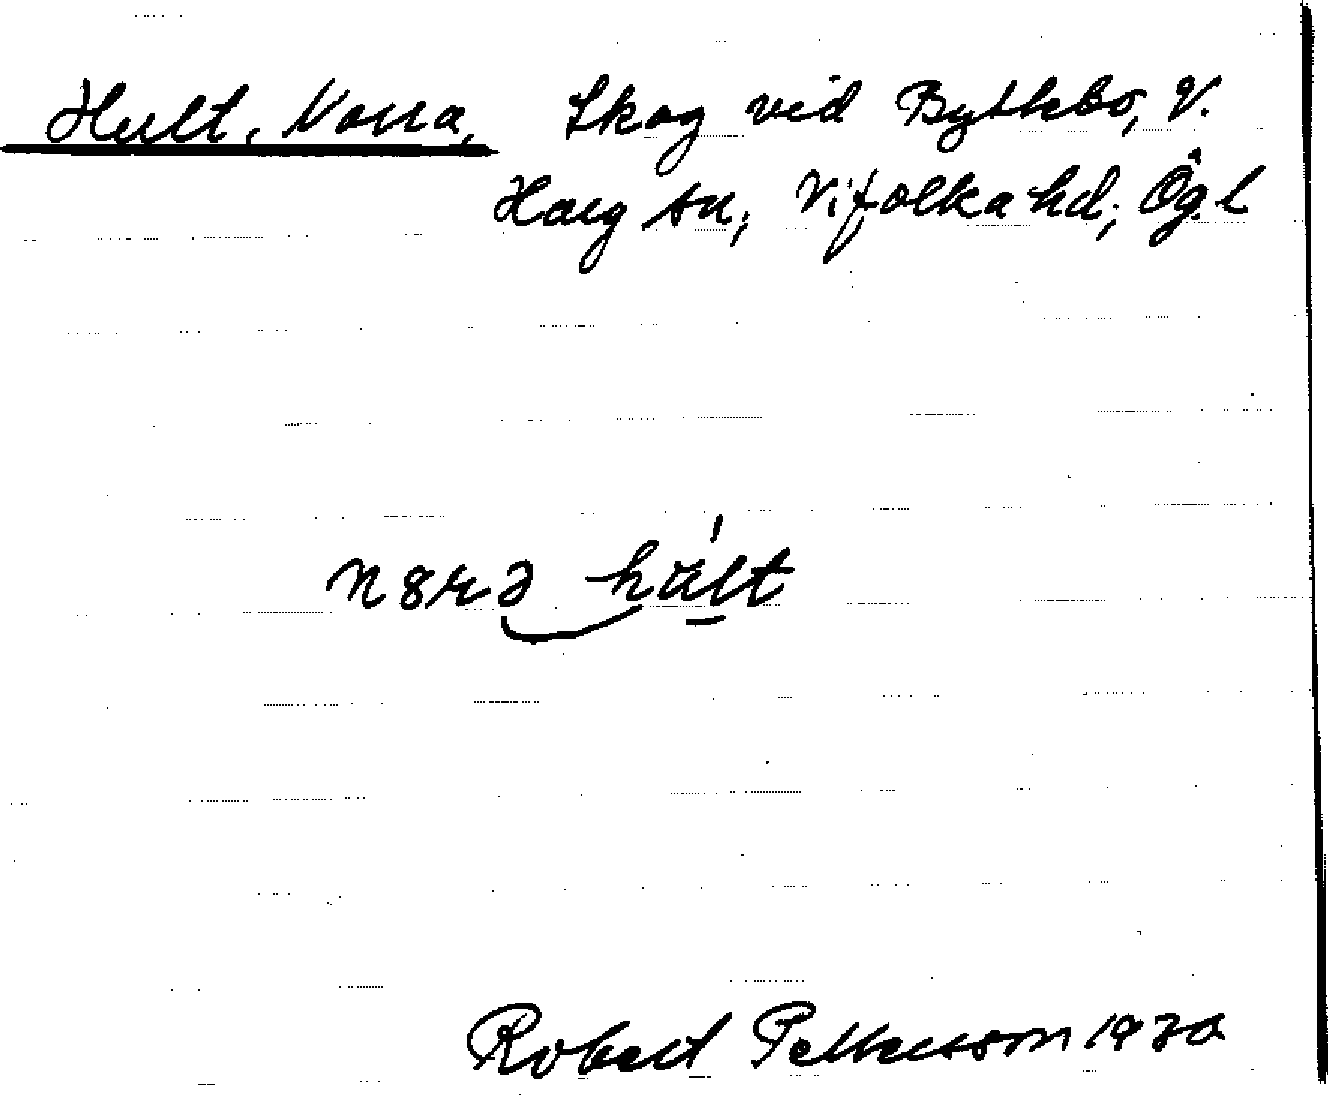 Hult, Norra, Skog vid Bytkbo, V.
Harg sn, Vifolka hd, Ög.l
n8rə hult
Robert Pettersson 1930